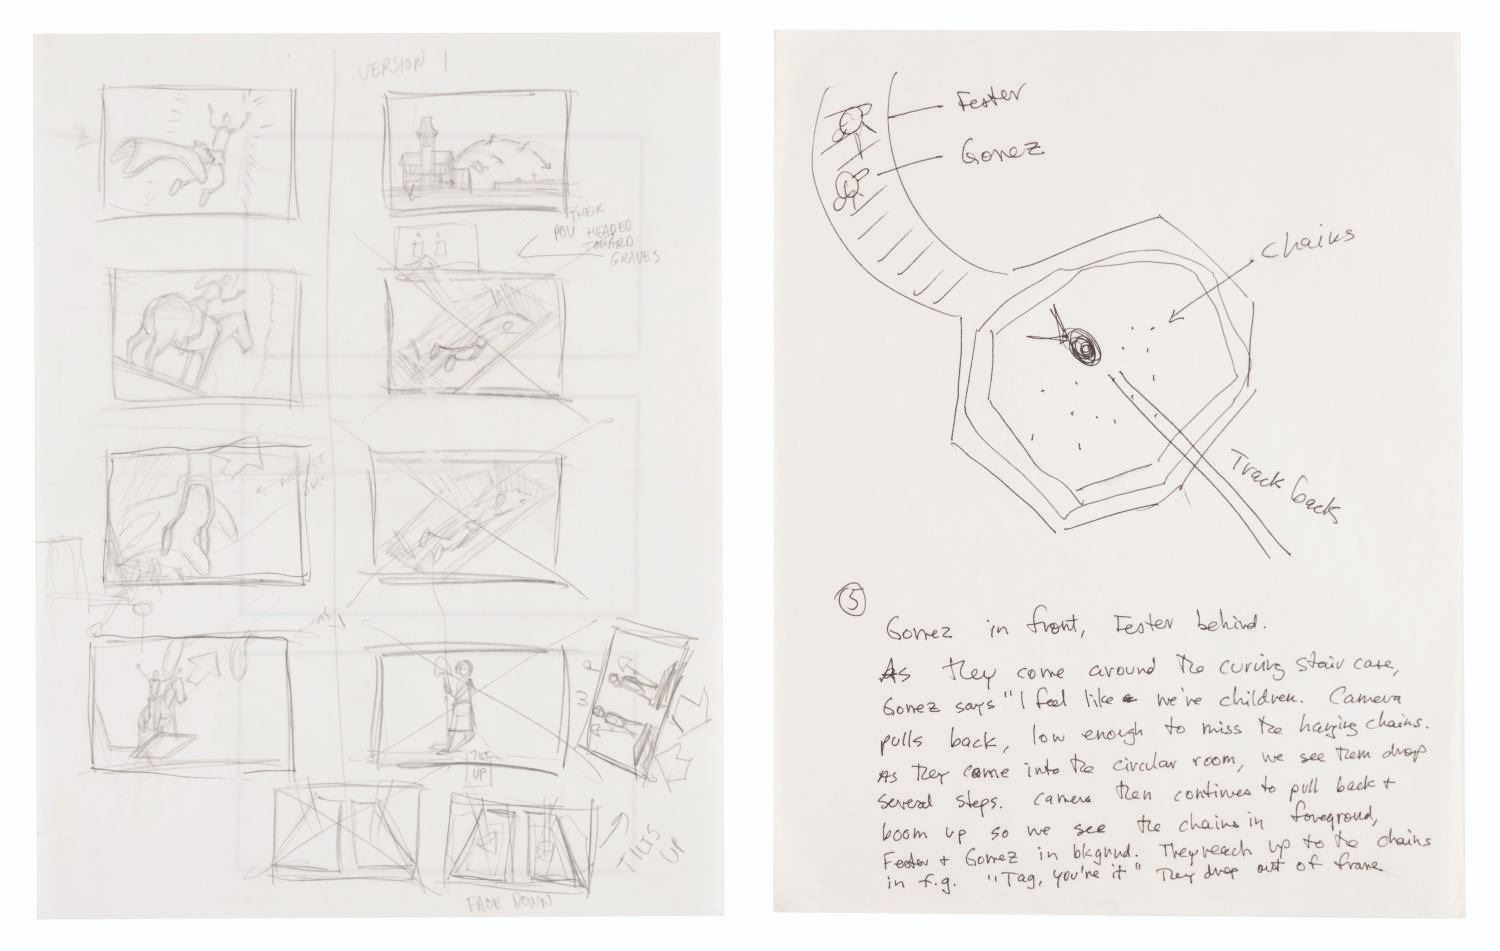 VERSION 1
THEIR
POV HEADED
TOWARD
GRAVES
TILT
UP
3
TILTS
UP
FACE DOWN
Fester
Gomez
Chains
Track back
5
Gomez in front, Fester behind.
As they come around the curving stair case,
Gomez says "I feel like we're children. Camera
pulls back, low enough to miss the hanging chains.
As they come into the circular room, we see them drop
several steps. Camera then continues to pull back +
boom up so we see the chains in foreground,
Fester + Gomez in bkgrnd. They reach up to the chains
in f.g. "Tag, you're it" They drop out of frame